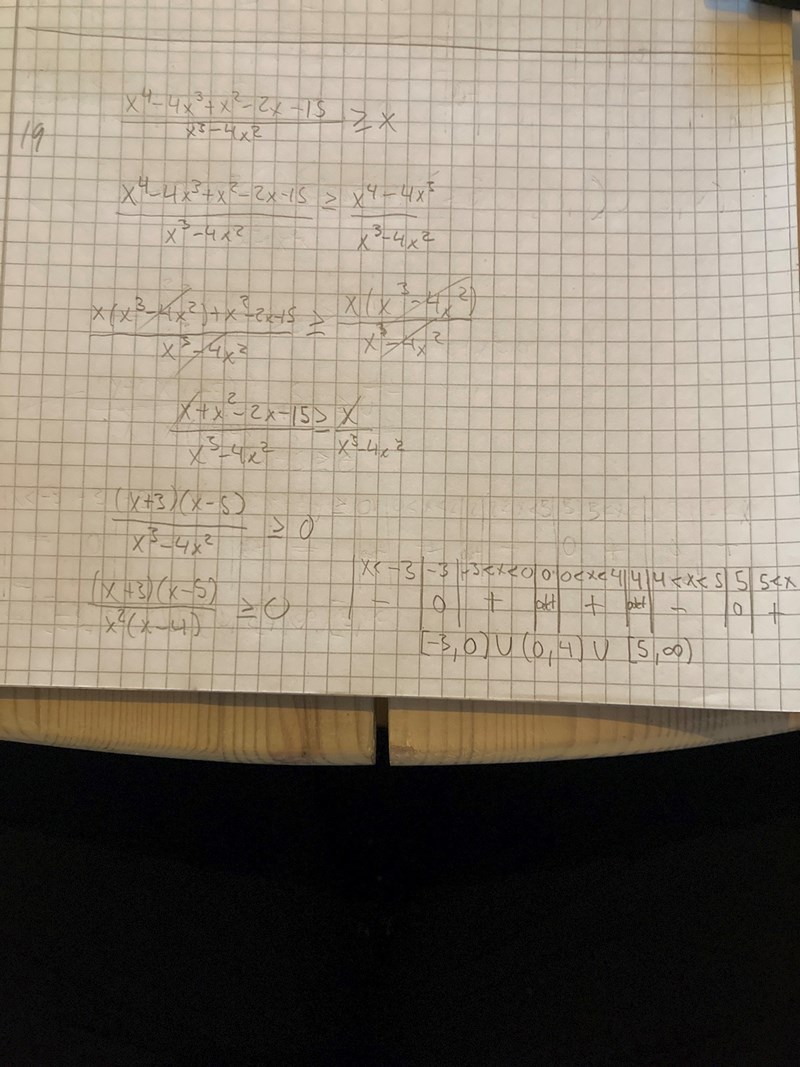 19
x⁴-4x³+x²-2x-15 / x³-4x² ≥ x
x⁴-4x³+x²-2x-15 / x³-4x² ≥ x⁴-4x³ / x³-4x²
x(x³-4x²)+x²-2x+5 / x³-4x² ≥ x(x³-4x²) / x³-4x²
x+x²-2x-15 / x³-4x² ≥ x / x³-4x²
(x+3)(x-5) / x³-4x² ≥ 0
(x+3)(x-5) / x²(x-4) ≥ 0
x<-3 | -3 | -3<x<0 | 0 | 0<x<4 | 4 | 4<x<5 | 5 | 5<x
- | 0 | + | | + | | - | 0 | +
[-3,0) ∪ (0,4) ∪ [5,∞)